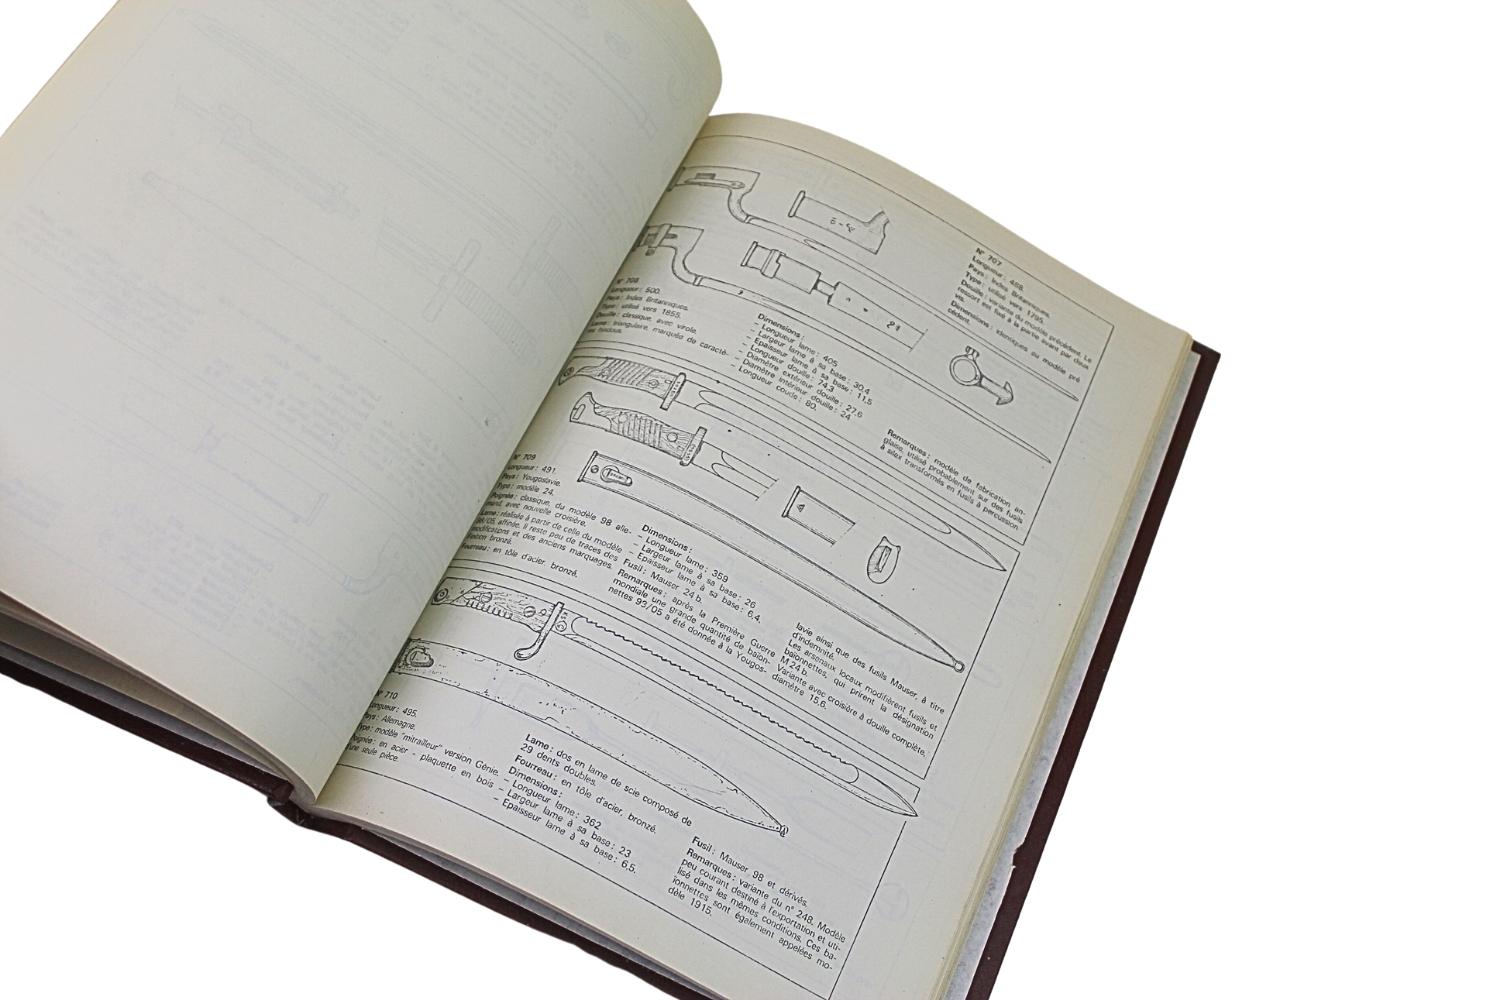 N° 707
Longueur : 458.
Pays : Indes Britanniques.
Type : utilisé vers 1795.
Douille : variante du modèle précédent. Le
ressort est fixé à la partie avant par deux
vis.
Dimensions : identiques au modèle pré
cédent.
N° 708
Longueur : 500.
Pays : Indes Britanniques.
Type : utilisé vers 1855.
Douille : classique, avec virole.
Lame : triangulaire, marquée de caractè-
res hindous.
Dimensions :
- Longueur lame : 405
- Largeur lame à sa base : 30,4
- Epaisseur lame à sa base : 11,5
- Longueur douille : 74,3
- Diamètre extérieur douille : 27,6
- Diamètre intérieur douille : 24
- Longueur coude : 80.
Remarques : modèle de fabrication an-
glaise, utilisé probablement sur des fusils
à silex transformés en fusils à percussion.
N° 709
Longueur : 491.
Pays : Yougoslavie.
Type : modèle 24.
Poignée : classique, du modèle 98 alle-
mand, avec nouvelle croisière.
Lame : réalisée à partir de celle du modèle
98/05, affinée. Il reste peu de traces des
modifications et des anciens marquages.
Finition bronzé.
Fourreau : en tôle d'acier bronzé.
Dimensions :
- Longueur lame : 359
- Largeur lame à sa base : 26
- Epaisseur lame à sa base : 6,4.
Fusil : Mauser 24 b.
Remarques : après la Première Guerre
mondiale une grande quantité de baïon-
nettes 98/05 a été donnée à la Yougos-
lavie ainsi que des fusils Mauser, à titre
d'indemnité.
Les arsenaux locaux modifièrent fusils et
baïonnettes, qui prirent la désignation
M 24 b.
Variante avec croisière à douille complète,
diamètre 15,6.
N° 710
Longueur : 495.
Pays : Allemagne.
Type : modèle "mitrailleur" version Génie.
Poignée : en acier - plaquette en bois
une seule pièce.
Lame : dos en lame de scie composé de
29 dents doubles.
Fourreau : en tôle d'acier, bronzé.
Dimensions :
- Longueur lame : 362
- Largeur lame à sa base : 23
- Epaisseur lame à sa base : 6,5.
Fusil : Mauser 98 et dérivés.
Remarques : variante du n° 248. Modèle
peu courant destiné à l'exportation et uti-
lisé dans les mêmes conditions. Ces ba-
ïonnettes sont également appelées mo-
dèle 1915.